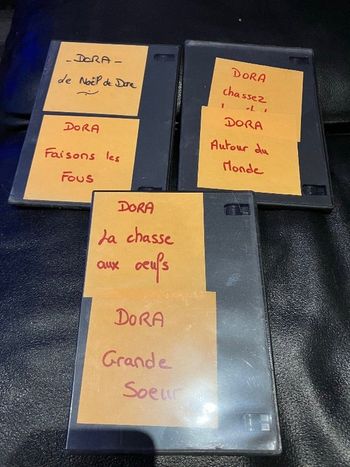 - DORA -
de Noël de Dora
DORA
Faisons les
Fous
DORA
Chassez
DORA
Autour du
Monde
DORA
La chasse
aux oeufs
DORA
Grande
Soeur